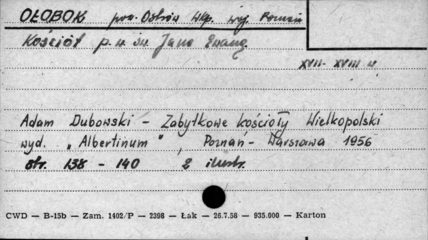 OŁOBOK pow. Ostrów Wkp. woj. Poznań
Kościół p.w. św. Jana Ewang.
XVII - XVIII w.
Adam Dubowski - Zabytkowe kościoły Wielkopolski
wyd. "Albertinum", Poznań - Warszawa 1956
str. 138 - 140 2 ilustr.
CWD — B-15b — Zam. 1402/P — 2398 — Łak — 26.7.56 — 935.000 — Karton